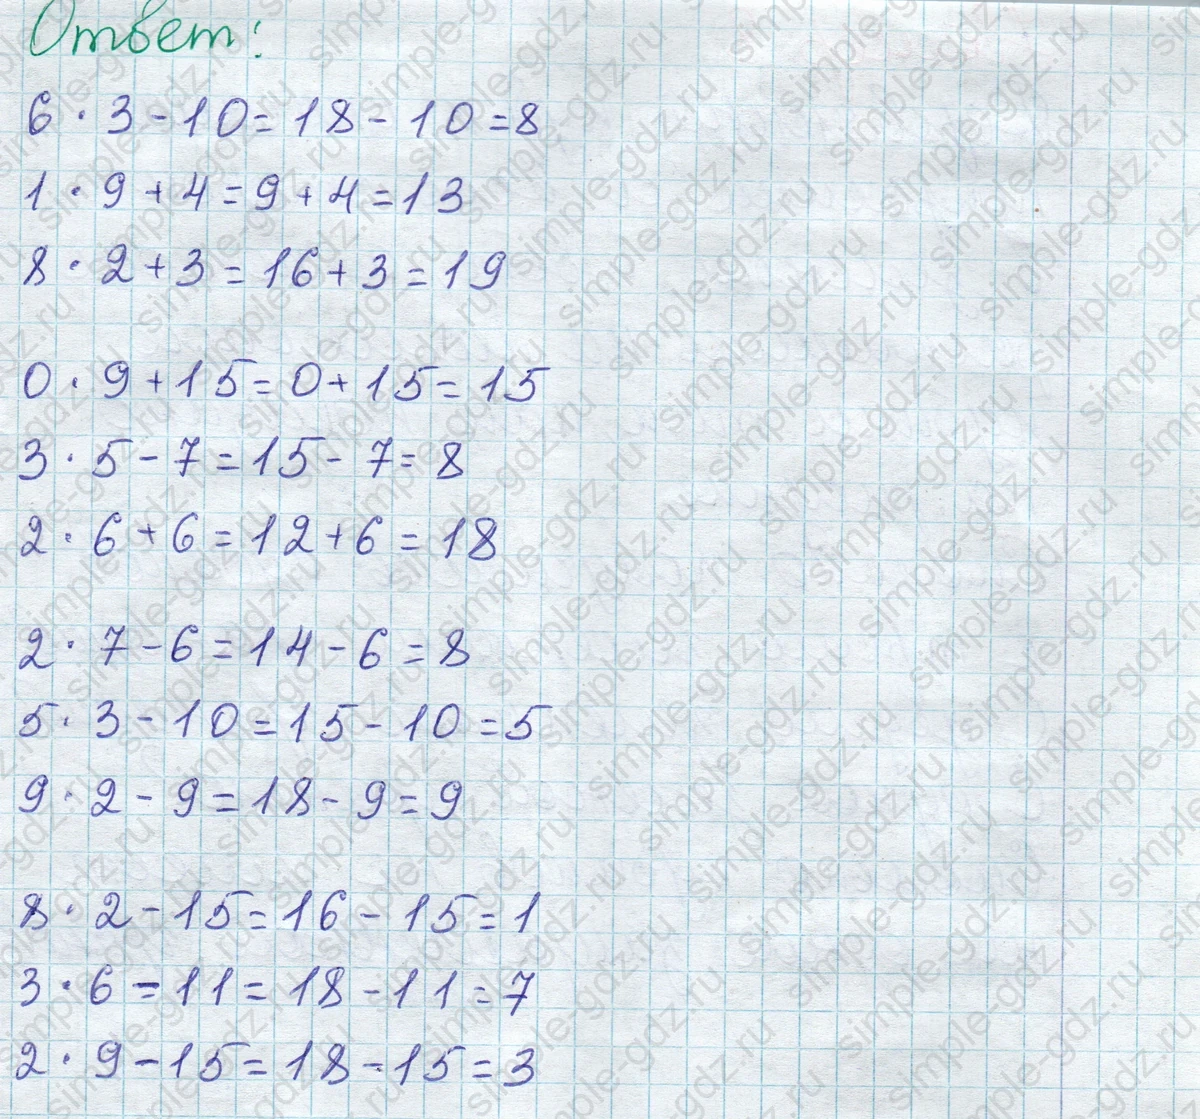 Ответ:
6 · 3 - 10 = 18 - 10 = 8
1 · 9 + 4 = 9 + 4 = 13
8 · 2 + 3 = 16 + 3 = 19
0 · 9 + 15 = 0 + 15 = 15
3 · 5 - 7 = 15 - 7 = 8
2 · 6 + 6 = 12 + 6 = 18
2 · 7 - 6 = 14 - 6 = 8
5 · 3 - 10 = 15 - 10 = 5
9 · 2 - 9 = 18 - 9 = 9
8 · 2 - 15 = 16 - 15 = 1
3 · 6 - 11 = 18 - 11 = 7
2 · 9 - 15 = 18 - 15 = 3
simple-gdz.ru